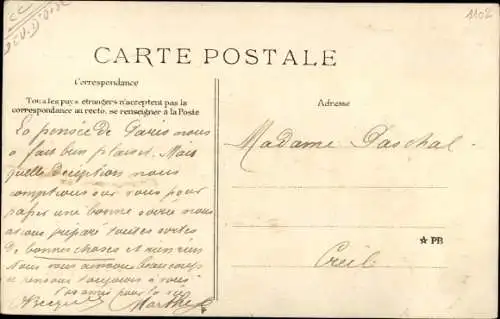 1102
CARTE POSTALE
Correspondance
Tous les pays étrangers n'acceptent pas la
correspondance au recto, se renseigner à la Poste
Adresse
La pensée de Paris nous
a fait bien plaisir. Mais
quelle déception nous
comptions sur vous pour
passer une bonne soirée nous
avions préparé toutes sortes
de bonnes choses et rien rien
Nous vous aimons beaucoup
pensons toujours à vous
pour la vie
Marthe
Madame Paschal
★ PB
Creil